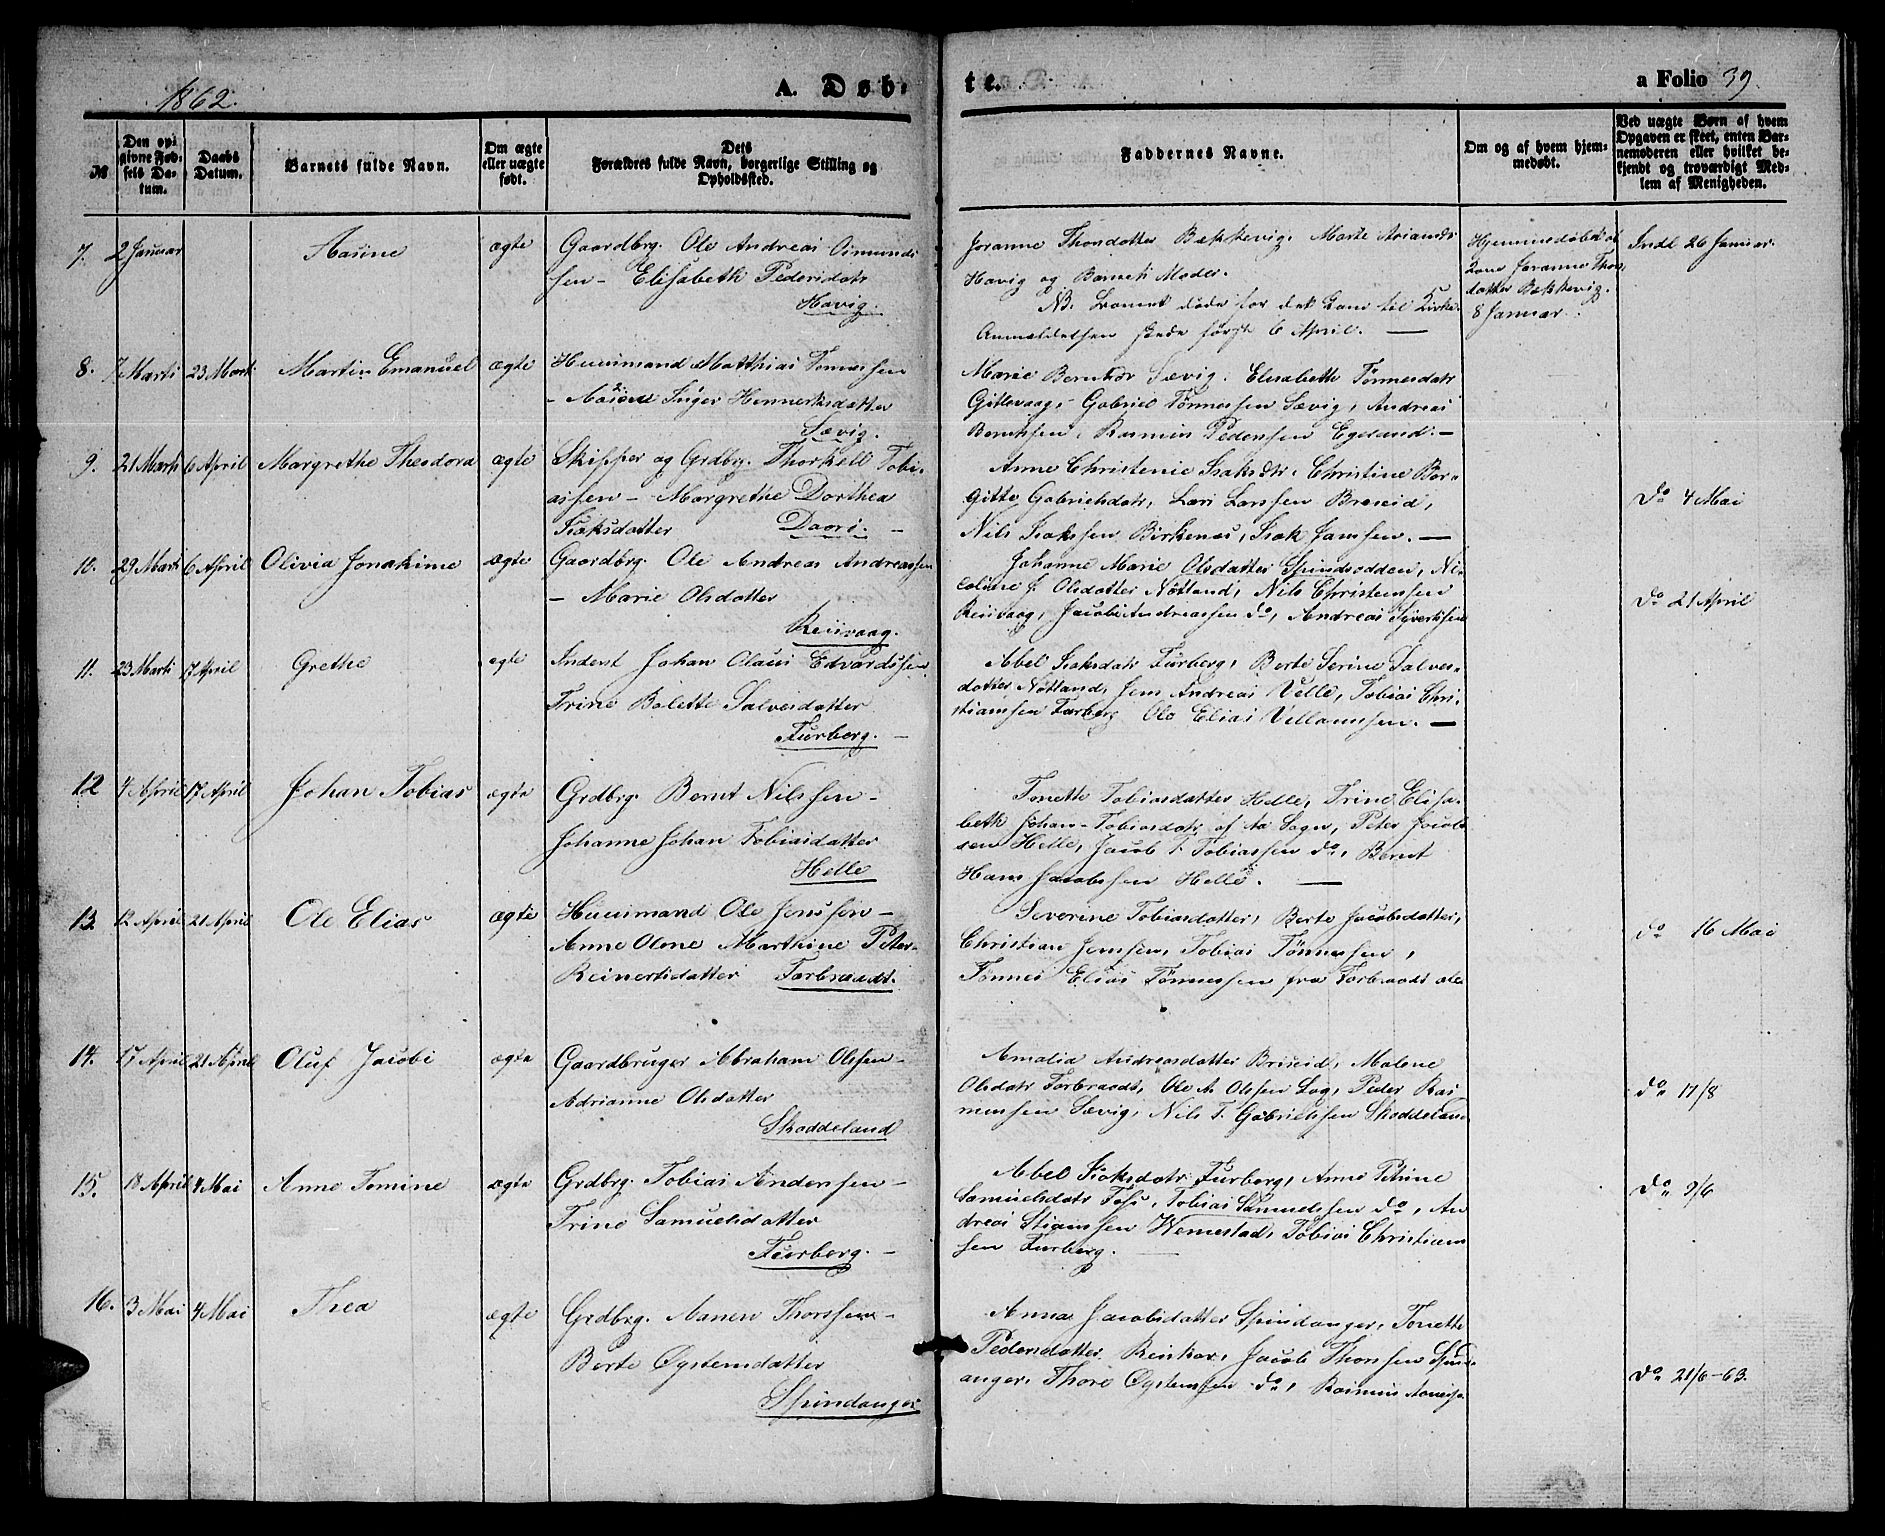 1862.
A. Døb-
te.
a Folio 39.
№
Den opgivne Fødsels Datum.
Daabs Datum.
Barnets fulde Navn.
Om ægte eller uægte født.
Dets Forældres fulde Navn, borgerlige Stilling og Opholdssted.
Faddernes Navne.
Om og af hvem hjemmedøbt.
Ved uægte Børn af hvem Opgaven er skeet, enten Barnemoderen eller hvilket bekjendt og troværdigt Medlem af Menigheden.
7. 2 Januar
Aasine
ægte
Gaardbrg. Ole Andreas Osmunds
sen - Elisabeth Pedersdatr
Havig.
Joranne Thorsdatter Bækkevig, Marte
Havig og Barnets Moder.
NB. Barnet døde før det kom til Kirke.
Anmeldelsen skede først 6 April. —
Hjemmedøbt af
Kone Joranne Thors
datter Bækkevig.
8 Januar.
Indl 26 Januar.
8. 7 Marts 23 Marts
Martin Emanuel
ægte
Huusmand Matthias Tønnessen
- Inger Hennerksdatter
Sævig.
Marie Berntsdr Sævig. Elisabeth Tønnesdatr
Gitlevaag, Gabriel Tønnessen Sævig, Andreas
Berntsen, Rasmus Pedersen Egeland. —
9. 21 Marts 6 April
Margrethe Theodora
ægte
Skipper og Grdbrg. Thorkell Tobi-
assen - Margrethe Dorthea
Isaksdatter Daars. -
Anne Christenie Isaksdtr. Christine Ber-
gitte Gabrielsdatr, Lars Larssen Briseid,
Nils Isakssen Birkenes, Isak Janssen. —
do 4 Mai
10. 29 Marts 6 April
Olivia Jonakime
ægte
Gaardbrg. Ole Andreas Andreassen
- Marie Olsdatter
Reiisvaag.
Johanne Marie Olsdatter Spindsodden, Ni-
coline J. Olsdatter Nøtland, Nils Christenssen
Reiisvaag, Jacob Andreassen do, Andreas Syvertssen
do 21 April
11. 23 Marts 17 April
Grethe
ægte
Inderst Johan Olaus Edvardssen
Trine Bolette Salvesdatter
Furberg. -
Abel Isaksdatr Furberg, Berte Serine Salves-
datter Nøtland, Jens Andreas Velle, Tobias Chri-
stianssen Furberg Ole Elias Villumssen. —
12 4 April 17 April
Johan Tobias
ægte
Grdbrg. Bernt Nilssen -
Johanne Johan Tobiasdatter
Helle
Tonette Tobiasdatter Helle, Trine Elisa-
beth Johan-Tobiasdatr af Aa Sogn, Peter Jacob
sen Helle, Jacob T. Tobiassen do, Bernt
Hans Jacobssen Helle. —
13. 12 April 21 April
Ole Elias
ægte
Huusmand Ole Jenssen -
Anne Olene Marthine Peter-
Reinertsdatter Farbraadt.
Severine Tobiasdatter, Berte Jacobsdatter,
Christian Jenssen, Tobias Tønnessen,
Tønnes Elias Tønnessen fra Farbraadt alle
do 16 Mai
14. 17 April 21 April
Oluf Jacobi
ægte
Gaardbruger Abraham Olssen -
Adrianne Olsdatter
Skoddeland
Amalia Andreasdatter Briseid, Malene
Olsdatr Farbraadt, Ole A. Olssen Log, Peder Ras
mussen Sævig, Nils T. Gabrielssen Skoddeland
do 17/8
15. 18 April 4 Mai
Anne Tomine
ægte
Grdbrg. Tobias Anderssen -
Trine Samuelsdatter
Furberg. -
Abel Isaksdatr Furberg, Anne Petrine
Samuelsdatr Foss, Tobias Samuelssen do, An
dreas Stianssen Wemestad, Tobias Christians
sen Furberg. —
do 9/6
16. 3 Mai 4 Mai
Thea
ægte
Grdbrg. Aanen Thorssen -
Berte Øystensdatter
Spindanger
Anna Jacobsdatter Spindanger, Tonette
Pedersdatter Reisker, Jacob Thorssen Spind
anger, Thore Øystenssen do, Rasmus
do 21/6-63.